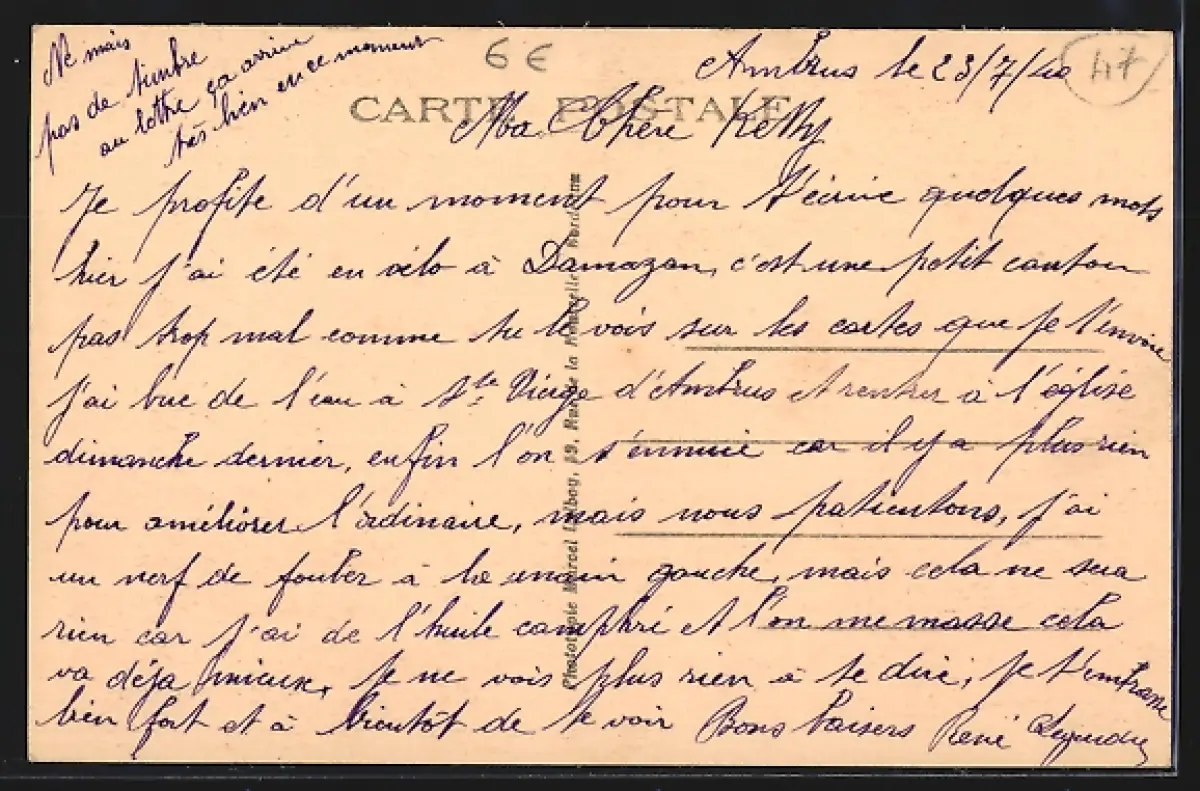 Ne mais
pas de timbre
au lettre ça arrive
très bien en ce moment
6 €
47
Ambrus le 23/7/40
CARTE POSTALE
Ma Chère Ketty
Je profite d'un moment pour t'écrire quelques mots
hier j'ai été en vélo à Damazan, c'est une petit canton
pas trop mal comme tu le vois sur les cartes que je t'envoie
j'ai bue de l'eau à Ste Vierge d'Ambrus et rentrer à l'église
dimanche dernier, enfin l'on s'ennuie car il y a plus rien
pour améliorer l'ordinaire, mais nous patientons, j'ai
un nerf de fouler à la main gauche, mais cela ne sera
rien car j'ai de l'huile camphré et l'on me masse cela
va déja mieux, je ne vois plus rien à te dire, je t'embrasse
bien fort et à bientôt de te voir Bons baisers René
Phototypie Marcel Delboy, Rue de la